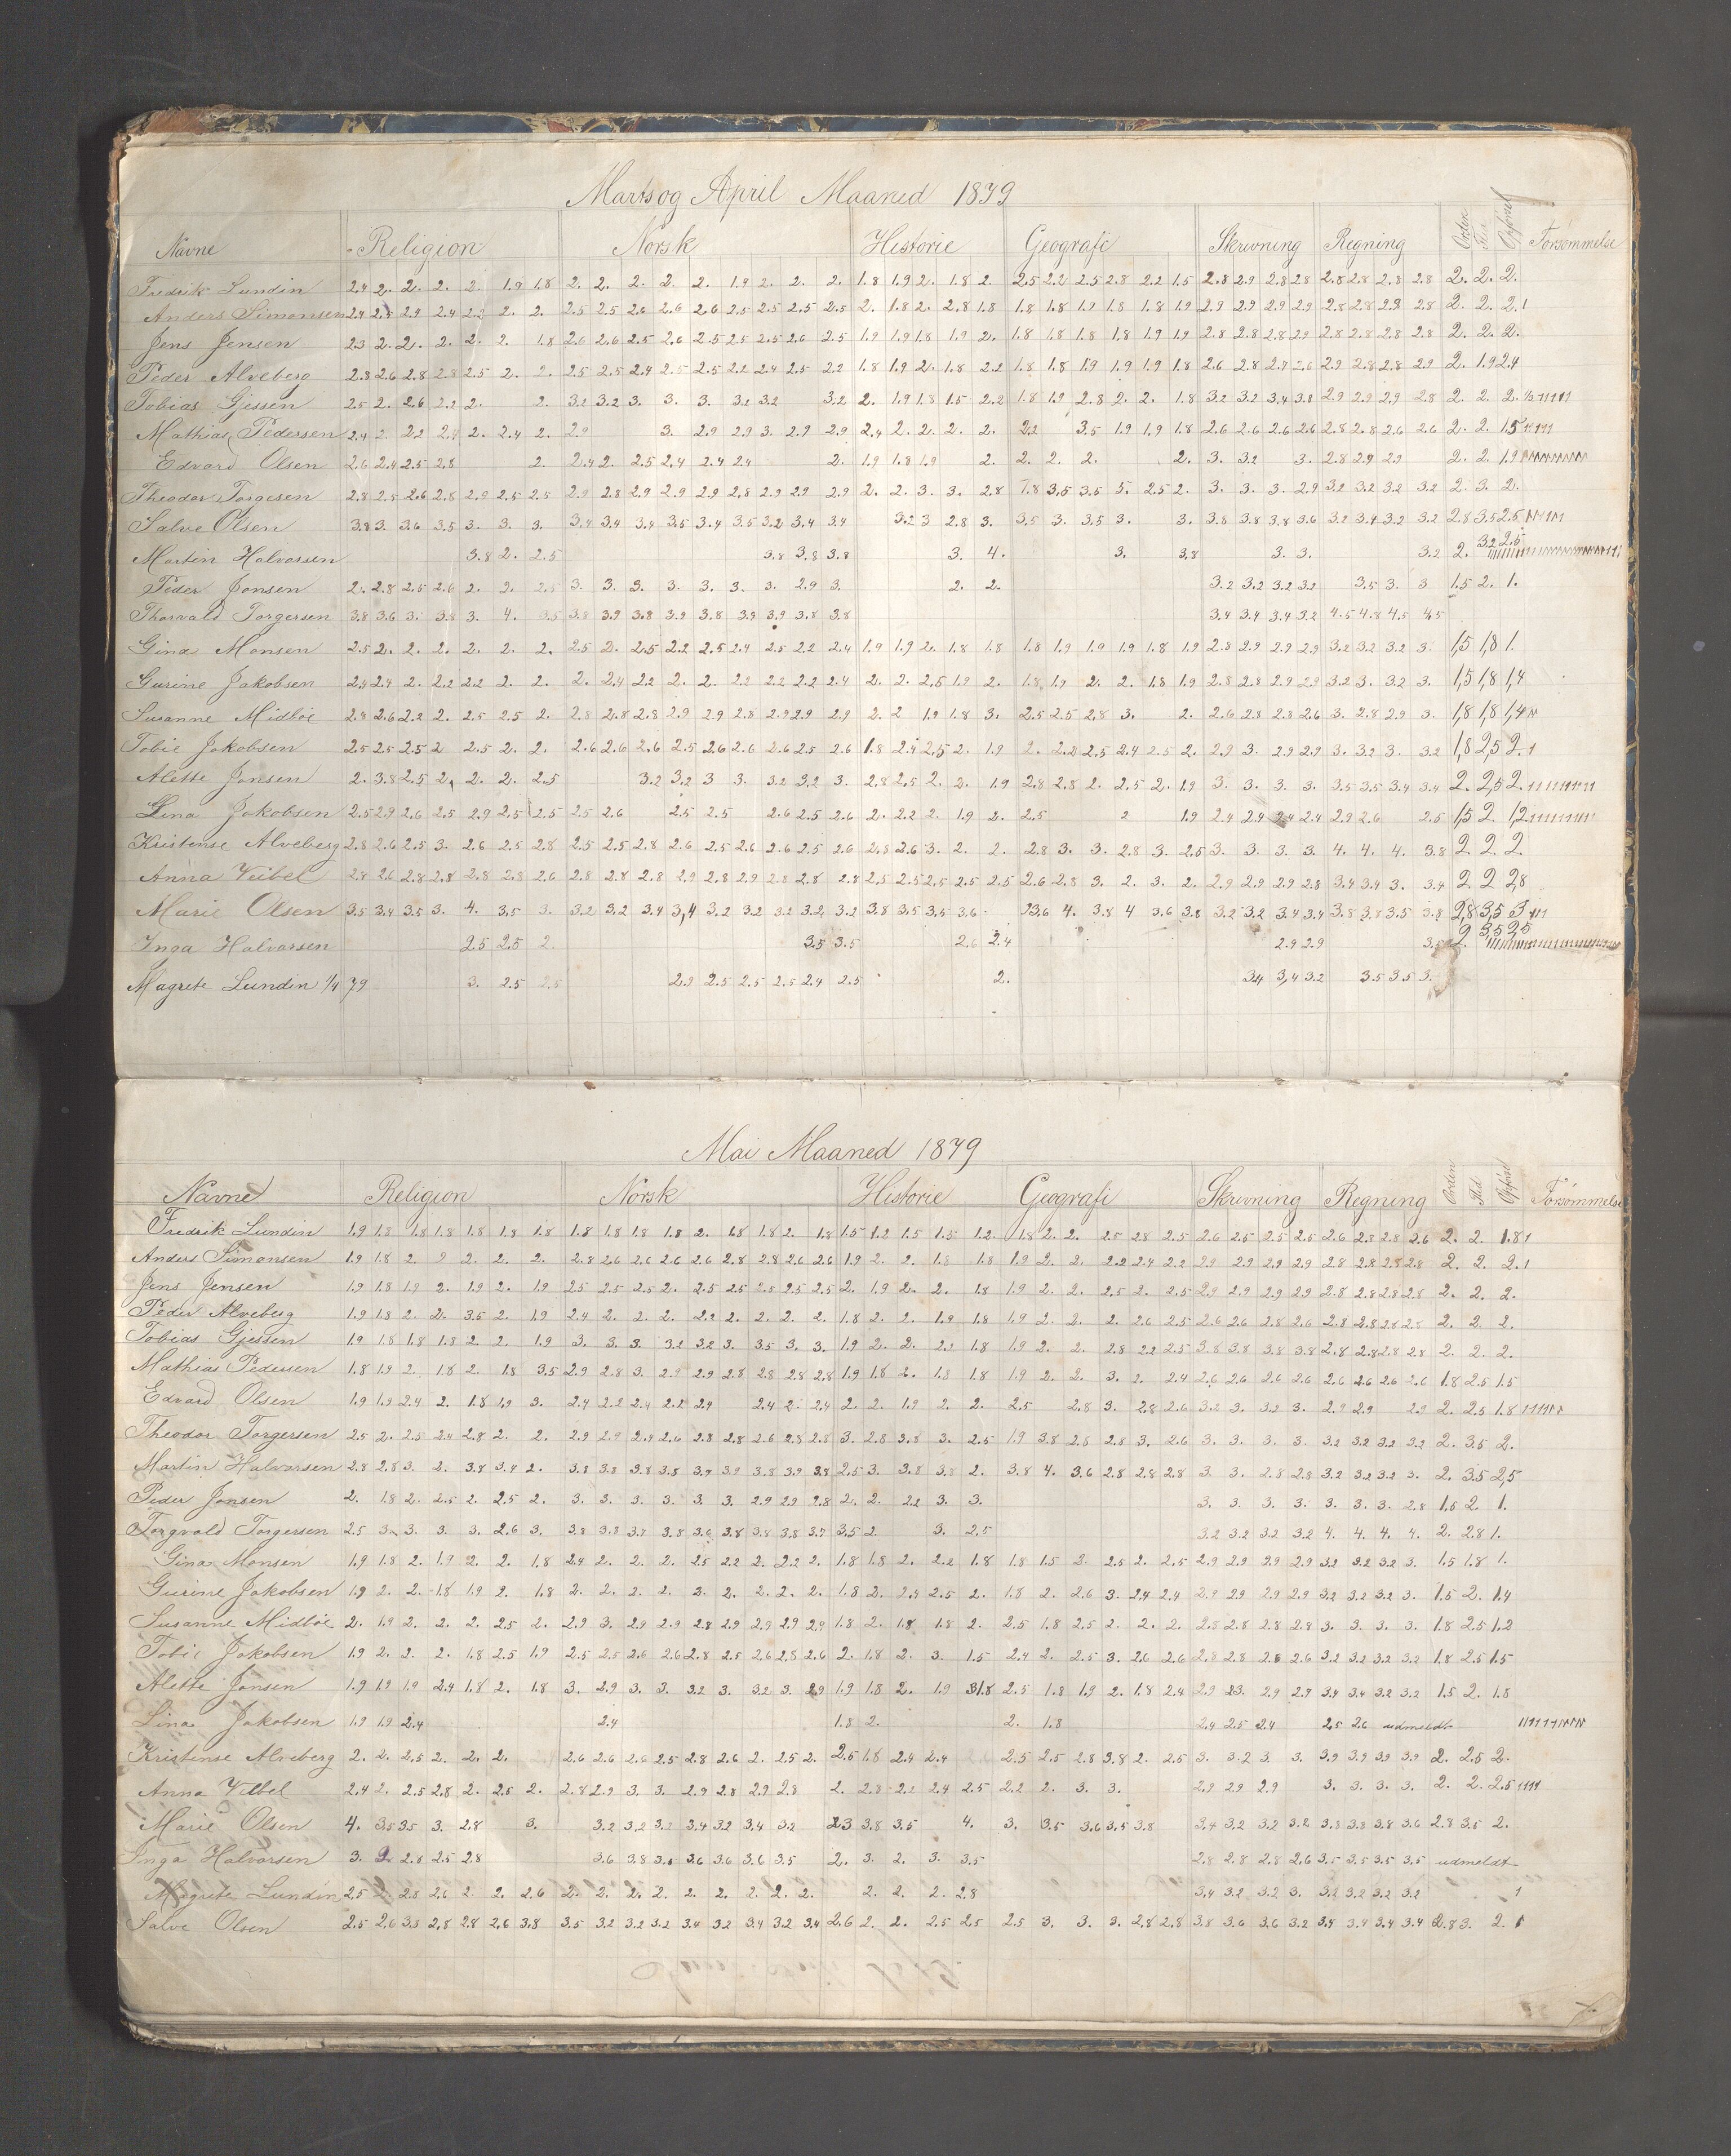 Marts og April Maaned 1879
Navne Religion Norsk Historie Geografi Skrivning Regning Orden Flid Opførsel Forsømmelse
Fredrik Lundin 2.4 2. 2. 2. 2. 1.9 1.8 2. 2. 2. 2. 2. 1.9 2. 2. 2. 1.8 1.9 2. 1.8 2. 2.5 2.2 2.5 2.8 2.2 1.5 2.8 2.9 2.8 2.8 2.8 2.8 2.8 2.8 2. 2. 2.
Anders Simonsen 2.4 2.5 2.9 2.4 2.2 2. 2. 2.5 2.5 2.6 2.6 2.6 2.5 2.5 2.5 2.5 2. 1.8 2. 2.8 1.8 1.8 1.8 1.9 1.8 1.8 1.9 2.9 2.9 2.9 2.9 2.8 2.8 2.9 2.8 2. 2. 2. 1
Jens Jensen 2.3 2. 2. 2. 2. 2. 1.8 2.6 2.6 2.5 2.6 2.5 2.5 2.5 2.6 2.5 1.9 1.9 1.8 1.9 2. 1.8 1.8 1.8 1.8 1.9 1.9 2.8 2.8 2.8 2.9 2.8 2.8 2.8 2.8 2. 2. 2.
Peder Alveberg 2.8 2.6 2.8 2.8 2.5 2. 2. 2.5 2.5 2.4 2.5 2.5 2.2 2.4 2.5 2.2 1.8 1.9 2. 1.8 2.2 1.8 1.8 1.9 1.9 1.9 1.8 2.6 2.8 2.7 2.6 2.9 2.8 2.8 2.9 2. 1.9 2.4
Tobias Gjessen 2.5 2. 2.6 2.2 2. 2. 3.2 3.2 3. 3. 3. 3.2 3.2 3.2 2. 1.9 1.8 1.5 2.2 1.8 1.9 2.8 2. 2. 1.8 3.2 3.2 3.4 3.8 2.9 2.9 2.9 2.8 2. 2. 2.
Mathias Pedersen 2.4 2. 2.2 2.4 2. 2.4 2. 2.9 3. 2.9 2.9 3. 2.9 2.9 2.4 2. 2. 2. 2. 2.2 3.5 1.9 1.9 1.8 2.6 2.6 2.6 2.6 2.8 2.8 2.6 2.6 2. 2. 1.5
Edvard Olsen 2.6 2.4 2.5 2.8 2. 2.4 2. 2.5 2.4 2.4 2.4 2. 1.9 1.8 1.9 2. 2. 2. 2. 2. 3. 3.2 3. 2.8 2.9 2.9 2. 2. 1.9
Theodor Torgesen 2.8 2.5 2.6 2.8 2.9 2.5 2.5 2.9 2.8 2.9 2.9 2.9 2.8 2.9 2.9 2.9 2. 2. 3. 3. 2.8 1.8 3.5 3.5 3. 2.5 2. 3. 3. 3. 2.9 3.2 3.2 3.2 3.2 2. 3. 2.
Salve Olsen 3.8 3. 3.6 3.5 3. 3. 3. 3.4 3.4 3.4 3.5 3.4 3.5 3.2 3.4 3.4 3.2 3 2.8 3. 3.5 3. 3.5 3. 3. 3.8 3.8 3.8 3.6 3.2 3.4 3.2 3.2 2.8 3.5 2.5
Martin Halvorsen 3.8 2. 2.5 3.8 3.8 3.8 3. 4. 3. 3.8 3. 3. 3.2 2. 3.2 2.5
Peder Jonsen 2. 2.8 2.5 2.6 2. 2. 2.5 3. 3. 3. 3. 3. 3. 3. 2.9 3. 2. 2. 3.2 3.2 3.2 3.2 3.5 3. 3 1.5 2. 1.
Thorvald Torgersen 3.8 3.6 3. 3.8 3. 4. 3.5 3.8 3.9 3.8 3.9 3.8 3.9 3.9 3.8 3.8 3.4 3.4 3.4 3.2 4.5 4.8 4.5 4.5
Gina Monsen 2.5 2. 2. 2. 2. 2. 2. 2.5 2. 2.5 2.2 2.5 2.4 2.5 2.2 2.4 1.9 1.9 2. 1.8 1.8 1.8 1.9 1.9 1.9 1.8 1.9 2.8 2.9 2.9 2.9 3.2 3.2 3.2 3. 1,5 1,8 1.
Gurine Jakobsen 2.4 2.4 2. 2.2 2.2 2. 2. 2. 2.4 2.2 2. 2. 2.2 2.2 2.2 2.4 2. 2. 2.5 1.9 2. 1.8 1.9 2. 2. 1.8 1.9 2.8 2.8 2.9 2.9 3.2 3. 3.2 3. 1,5 1,8 1,4
Susanne Midbøe 2.4 2.6 2.2 2. 2.5 2.5 2. 2.8 2.8 2.8 2.9 2.9 2.8 2.9 2.9 2.9 2. 2 1.9 1.8 3. 2.5 2.5 2.8 3. 2. 2.6 2.8 2.8 2.6 3. 2.8 2.9 3. 1,8 1,8 1,4
Tobie Jakobsen 2.5 2.5 2.5 2 2.5 2. 2. 2.6 2.6 2.6 2.5 2.6 2.6 2.6 2.5 2.6 1.8 2.4 2.5 2. 1.9 2. 2.2 2.5 2.4 2.5 2. 2.9 3. 2.9 2.9 3. 3.2 3. 3.2 1,8 2,5 2. 1
Alette Jonsen 2. 3.8 2.5 2. 2. 2. 2.5 3.2 3.2 3 3. 3.2 3.2 3. 2.8 2.5 2. 2. 1.9 2.8 2.8 2. 2.5 2. 1.9 3. 3. 3. 3. 3.5 3.5 3.4 3.4 2. 2,5 2.
Lina Jakobsen 2.5 2.9 2.6 2.5 2.9 2.5 2.5 2.5 2.6 2.5 2.5 2.6 2.5 2.6 2. 2.2 2. 1.9 2. 2.5 2 1.9 2.4 2.4 2.4 2.4 2.9 2.6 2.5 1,5 2. 1,2
Kristense Alveberg 2.8 2.6 2.5 3. 2.6 2.5 2.8 2.5 2.5 2.8 2.6 2.5 2.6 2.6 2.5 2.6 2.8 2.6 3. 2. 2. 2.8 3. 3. 2.8 3. 2.5 3. 3. 3. 3. 4. 4. 4. 3.8 2 2 2
Anna Veibel 2.8 2.6 2.8 2.8 2.8 2.8 2.6 2.8 2.8 2.8 2.9 2.8 2.9 2.8 2.8 2.8 2.5 2.5 2.5 2.5 2.5 2.6 2.8 3. 2. 3. 2. 2.9 2.9 2.9 2.8 3.4 3.4 3. 3.4 2 2 2,8
Marie Olsen 3.5 3.4 3.5 3. 4. 3.5 3. 3.2 3.2 3.4 3,4 3.2 3.2 3.2 3.2 3.2 3.8 3.5 3.5 3.6 3.6 4. 3.8 4 3.6 3.8 3.2 3.2 3.4 3.4 3.8 3.8 3.5 3.8 2,8 3,5 3
Inga Halvorsen 2.5 2.5 2. 3.5 3.5 2.6 2.4 2.9 2.9 3.5 2. 3,5 2,5
Magrete Lundin 1/4 79 3. 2.5 2.5 2.9 2.5 2.5 2.5 2.4 2.5 2. 3.4 3,4 3.2 3.5 3.5 3.
Mai Maaned 1879
Navne Religion Norsk Historie Geografi Skrivning Regning Orden Flid Opførsel Forsømmelse
Fredrik Lundin 1.9 1.8 1.8 1.8 1.8 1.8 1.8 1.8 1.8 1.8 1.8 2. 1.8 1.8 2. 1.8 1.5 1.2 1.5 1.5 1.2 1.8 2. 2. 2.5 2.8 2.5 2.6 2.5 2.5 2.5 2.6 2.8 2.8 2.6 2. 2. 1.8 1
Anders Simonsen 1.9 1.8 2. 2 2. 2. 2. 2.8 2.6 2.6 2.6 2.6 2.8 2.8 2.6 2.6 1.9 2. 2. 1.8 1.8 1.9 2. 2. 2.2 2.4 2.2 2.9 2.9 2.9 2.9 2.8 2.8 2.8 2.8 2. 2. 2. 1
Jens Jensen 1.9 1.8 1.9 2. 1.9 2. 1.9 2.5 2.5 2.5 2. 2.5 2.5 2.5 2.5 2.5 2. 1.9 2. 2. 1.8 1.9 2. 2. 2.5 2. 2.5 2.9 2.9 2.9 2.9 2.8 2.8 2.8 2.8 2. 2. 2.
Peder Alveberg 1.9 1.8 2. 2. 3.5 2. 1.9 2.4 2. 2. 2. 2.2 2. 2. 2. 2. 1.8 2. 2. 1.9 1.8 1.9 2. 2. 2. 2.6 2.5 2.6 2.6 2.8 2.6 2.8 2.8 2.8 2.8 2. 2. 2.
Tobias Gjessen 1.9 1.8 1.8 1.8 2. 2. 1.9 3. 3. 3. 3.2 3.2 3. 3.5 3. 3. 1.9 2. 2. 2.2 1.8 1.9 2. 2. 2.8 2.2 2.5 3.8 3.8 3.8 3.8 2.8 2.8 2.8 2.8 2. 2. 2.
Mathias Pedersen 1.8 1.9 2. 1.8 2. 1.8 3.5 2.9 2.8 3. 2.9 2.9 2.8 2.8 2.8 2.8 1.9 1.8 2. 1.8 1.8 1.9 2. 2. 3. 2. 2.4 2.6 2.6 2.6 2.6 2.6 2.6 2.6 2.6 1.8 2.5 1.5
Edvard Olsen 1.9 1.9 2.4 2. 1.8 1.9 3. 2.4 2.2 2.4 2.2 2.4 2.4 2. 2.4 2. 2. 1.9 2. 2. 2.5 2.8 3. 2.8 2.6 3.2 3. 3.2 3. 2.9 2.9 2.9 2. 2.5 1.8
Theodor Torgersen 2.5 2. 2.5 2.4 2.8 2. 2. 2.9 2.9 2.9 2.6 2.8 2.8 2.6 2.8 2.8 3. 2.8 3.8 3. 2.5 1.9 3.8 2.8 2.8 3. 2.6 3. 3. 3. 3. 3.2 3.2 3.2 3.2 2. 3.5 2.
Martin Halvorsen 2.8 2.8 3. 2. 3.8 3.4 2. 3.8 3.8 3.8 3.8 3.9 3.9 3.8 3.9 3.8 2.5 3. 3.8 3.8 2. 3.8 4. 3.6 2.8 2.8 2.8 3. 3. 2.8 2.8 3.2 3.2 3.2 3. 2. 3.5 2,5
Peder Jonsen 2. 1.8 2. 2.5 2. 2.5 2. 3. 3. 3. 3. 3. 3. 2.9 2.9 2.8 2. 2. 2.2 3. 3. 3. 3. 3. 3. 3. 3. 3. 2.8 1.5 2. 1.
Torgvald Torgersen 2.5 3. 3. 3. 3. 2.6 3. 3.8 3.8 3.7 3.8 3.6 3.8 3.8 3.8 3.7 3.5 2. 3. 2.5 3.2 3.2 3.2 3.2 4. 4. 4. 4. 2. 2.8 1.
Gina Monsen 1.9 1.8 2. 1.9 2. 2. 1.8 2.4 2. 2. 2. 2.5 2.2 2. 2.2 2. 1.8 1.8 2. 2.2 1.8 1.8 1.5 2. 2.5 2. 2.5 2.9 2.9 2.9 2.9 3.2 3.2 3.2 3. 1.5 1.8 1.
Gurine Jakobsen 1.9 2. 2. 1.8 1.9 2. 1.8 2. 2. 2. 2. 3. 2. 2. 2. 2. 1.8 2. 2.4 2.5 2. 1.8 2. 2.6 3. 2.4 2.4 2.9 2.9 2.9 2.9 3.2 3.2 3.2 3. 1.5 2. 1.4
Susanne Midbøe 2. 1.9 2. 2. 2. 2.5 2. 2.9 3. 2.9 2.9 2.8 2.9 2.9 2.9 2.9 1.8 2. 1.8 1.8 2. 2.5 1.8 2.5 2. 2. 2. 2.8 2.8 2.8 2.8 3. 3. 3. 3. 1.8 2.5 1.2
Tobie Jakobsen 1.9 2. 2. 2. 1.8 2.5 1.9 2.5 2.5 2.6 2.6 2.8 2.5 2.6 2.8 2.6 2. 1.8 2. 3. 1.5 2.4 2. 2.5 3. 2.6 2.6 2.8 2.8 2.8 2.6 3.2 3.2 3.2 3.2 1.8 2.5 1.5
Alette Jonsen 1.9 1.9 1.9 2.4 1.8 2. 1.8 3. 2.9 3. 3. 3.2 3. 3.2 3. 2.9 1.9 1.8 2. 1.9 1.8 2.5 1.8 1.9 2. 1.8 2.4 2.9 2.3. 2.9 2.9 3.4 3.4 3.2 3.2 1.5 2. 1.8
Lina Jakobsen 1.9 1.9 2.4 2.4 1.8 2. 2. 1.8 2.4 2.5 2.4 2.5 2.6 udmeldt
Kristense Alveberg 2. 2. 2.5 2. 2. 2. 2.6 2.6 2.6 2.5 2.8 2.6 2. 2.5 2. 2.5 1.8 2.4 2.4 2.5 2.5 2.8 3.8 2. 2.5 3. 3.2 3. 3. 3.9 3.9 3.9 3.9 2. 2.5 2.
Anna Veibel 2.4 2. 2.5 2.8 2. 2.5 2. 2.8 2.9 3. 3. 2.9 2.8 2.9 2.8 2. 2.8 2.2 2.4 2.5 2.2 2. 3. 3. 2.9 2.9 2.9 3. 3. 3. 3. 2. 2. 2.5
Marie Olsen 4. 3.5 3.5 3. 2.8 3. 3.2 3.2 3.2 3.4 3.2 3.4 3.2 2.3 3.8 3.5 4. 3. 3.5 3.6 3.5 3.8 3.4 3.2 3.2 3.2 3.8 3.8 3.8 3.6 2.8 3.5 2.
Inga Halvorsen 3. 2 2.8 2.5 2.8 3.6 3.8 3.6 3.6 3.6 3.6 3.5 2. 3. 2. 3. 3.5 2.8 2.8 2.8 2.6 3.5 3.5 3.5 3.5 udmeldt
Magrete Lundin 2.5 2. 2.8 2.6 2. 2. 2.6 2. 2. 2. 2. 2. 2. 2. 2. 2. 2. 2. 2. 2.8 3.4 3.2 3.2 3. 3.2 3.2 3.2 3.2 1
Salve Olsen 2.5 2.6 3.8 2.8 2.8 2.6 3.8 3.5 3.2 3.2 3.2 3.4 3.2 3.4 3.2 3.4 2.6 2. 2. 2.5 2.5 2.5 3. 3. 3. 2.8 2.8 3.8 3.6 3.6 3.2 3.4 3.4 3.4 3.4 2.8 3. 2. 1